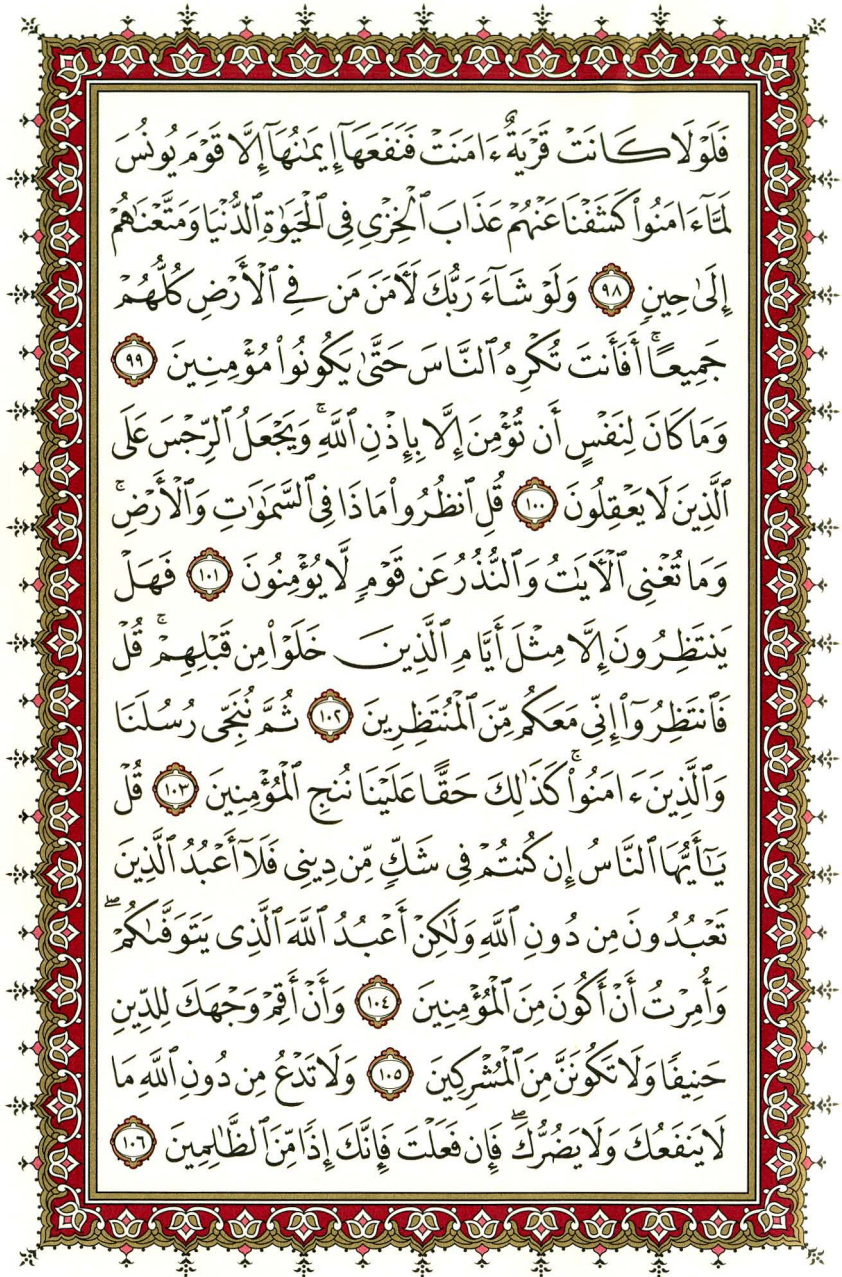 فَلَوْلَا كَانَتْ قَرْيَةٌ ءَامَنَتْ فَنَفَعَهَآ إِيمَٰنُهَآ إِلَّا قَوْمَ يُونُسَ
لَمَّآ ءَامَنُوا۟ كَشَفْنَا عَنْهُمْ عَذَابَ ٱلْخِزْىِ فِى ٱلْحَيَوٰةِ ٱلدُّنْيَا وَمَتَّعْنَٰهُمْ
إِلَىٰ حِينٍ ٩٨ وَلَوْ شَآءَ رَبُّكَ لَءَامَنَ مَن فِى ٱلْأَرْضِ كُلُّهُمْ
جَمِيعًا ۚ أَفَأَنتَ تُكْرِهُ ٱلنَّاسَ حَتَّىٰ يَكُونُوا۟ مُؤْمِنِينَ ٩٩
وَمَا كَانَ لِنَفْسٍ أَن تُؤْمِنَ إِلَّا بِإِذْنِ ٱللَّهِ ۚ وَيَجْعَلُ ٱلرِّجْسَ عَلَى
ٱلَّذِينَ لَا يَعْقِلُونَ ١٠٠ قُلِ ٱنظُرُوا۟ مَاذَا فِى ٱلسَّمَٰوَٰتِ وَٱلْأَرْضِ ۚ
وَمَا تُغْنِى ٱلْءَايَٰتُ وَٱلنُّذُرُ عَن قَوْمٍ لَّا يُؤْمِنُونَ ١٠١ فَهَلْ
يَنتَظِرُونَ إِلَّا مِثْلَ أَيَّامِ ٱلَّذِينَ خَلَوْا۟ مِن قَبْلِهِمْ ۚ قُلْ
فَٱنتَظِرُوٓا۟ إِنِّى مَعَكُم مِّنَ ٱلْمُنتَظِرِينَ ١٠٢ ثُمَّ نُنَجِّى رُسُلَنَا
وَٱلَّذِينَ ءَامَنُوا۟ ۚ كَذَٰلِكَ حَقًّا عَلَيْنَا نُنجِ ٱلْمُؤْمِنِينَ ١٠٣ قُلْ
يَٰٓأَيُّهَا ٱلنَّاسُ إِن كُنتُمْ فِى شَكٍّ مِّن دِينِى فَلَآ أَعْبُدُ ٱلَّذِينَ
تَعْبُدُونَ مِن دُونِ ٱللَّهِ وَلَٰكِنْ أَعْبُدُ ٱللَّهَ ٱلَّذِى يَتَوَفَّىٰكُمْ ۖ
وَأُمِرْتُ أَنْ أَكُونَ مِنَ ٱلْمُؤْمِنِينَ ١٠٤ وَأَنْ أَقِمْ وَجْهَكَ لِلدِّينِ
حَنِيفًا وَلَا تَكُونَنَّ مِنَ ٱلْمُشْرِكِينَ ١٠٥ وَلَا تَدْعُ مِن دُونِ ٱللَّهِ مَا
لَا يَنفَعُكَ وَلَا يَضُرُّكَ ۖ فَإِن فَعَلْتَ فَإِنَّكَ إِذًا مِّنَ ٱلظَّٰلِمِينَ ١٠٦